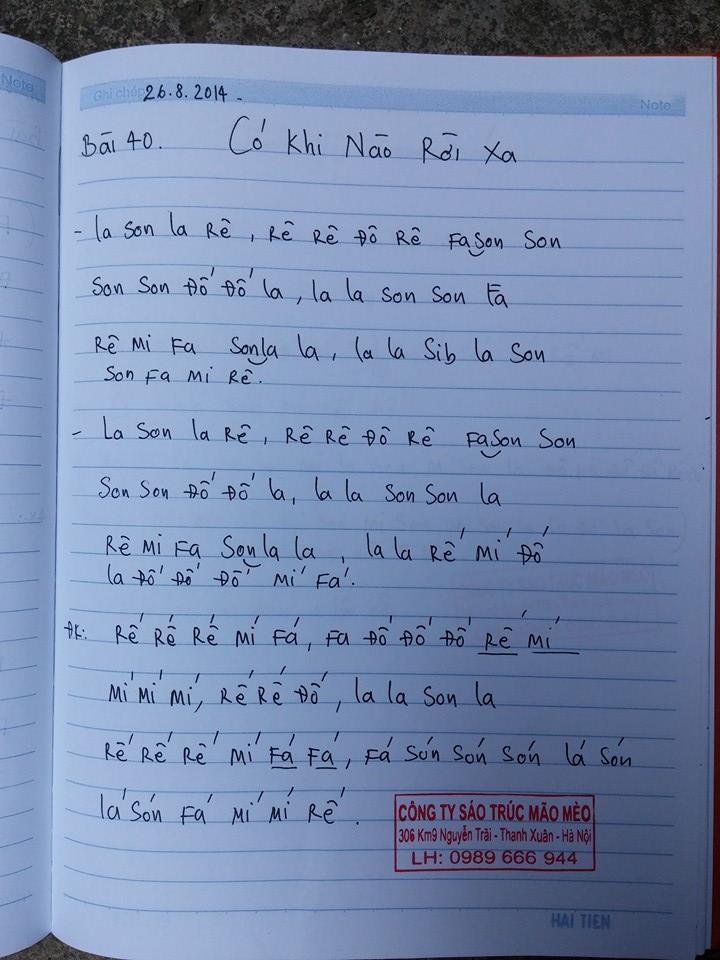 Note
Ghi chép 26.8.2014. Note
Bài 40. Có Khi Nào Rời Xa
- la son la Rê, Rê Rê Đồ Rê Fason Son
Son Son Đố Đố la, la la son son Fa
Rê Mi Fa Sonla la, la la Sib la Son
Son Fa Mi Rê.
- La Son la Rê, Rê Rê Đồ Rê Fason Son
Son Son Đố Đố la, la la Son Son la
Rê Mi Fa Sonla la, la la Rế Mí Đố
la Đố Đố Đố Mí Fá.
ĐK: Rế Rế Rế Mí Fá, Fa Đố Đố Đố Rế Mí
Mí Mí Mí, Rế Rế Đố, la la Son la
Rế Rế Rế Mí Fá Fá, Fá Són Són Són lá Són
lá Són Fá Mí Mí Rế.
CÔNG TY SÁO TRÚC MÃO MÈO
306 Km9 Nguyễn Trãi - Thanh Xuân - Hà Nội
LH: 0989 666 944
HAI TIEN